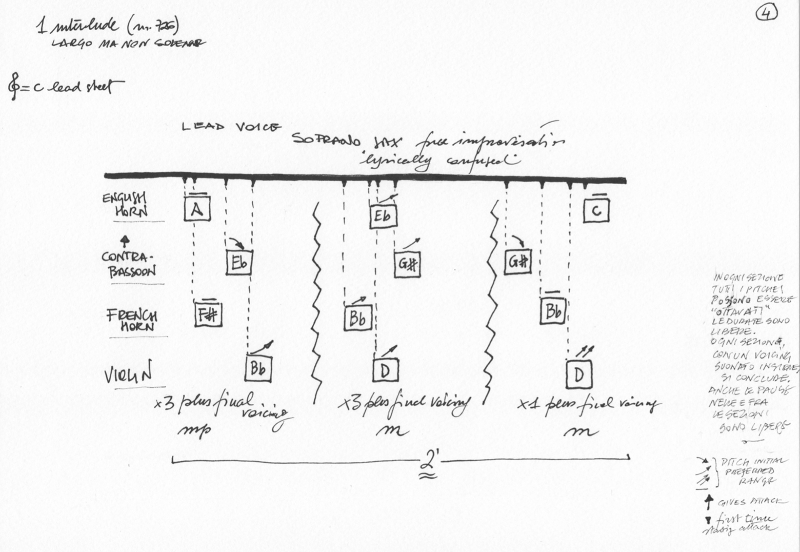 4
1 interlude (m. 726)
LARGO MA NON
= C lead sheet
LEAD VOICE SOPRANO SAX free improvisation
"lyrically confused"
ENGLISH HORN A Eb C
CONTRA-BASSOON Eb G# G#
FRENCH HORN F# Bb Bb
VIOLIN Bb D D
x3 plus final voicing x3 plus final voicing x1 plus final voicing
mp m m
2'
IN OGNI SEZIONE
TUTTI I PITCHES
POSSONO ESSERE
"OTTAVATI"
LE DURATE SONO
LIBERE.
OGNI SEZIONE,
CON UN VOICING
SUONATO INSIEME
SI CONCLUDE.
ANCHE LE PAUSE
NELLE E FRA
LE SEZIONI
SONO LIBERE
PITCH INITIAL
PREFERRED
RANGE
GIVES ATTACK
first time
attack